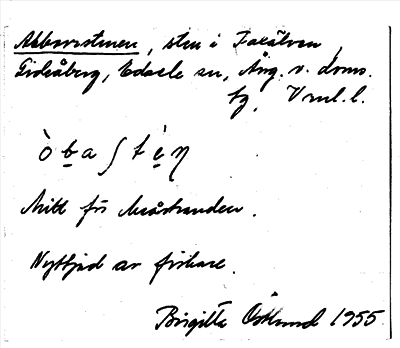 Abborrstenen, sten i Faxälven,
Gideåberg, Edsele sn, Ång. v. doms.
tg, Vnrl. l.
ò b̠ a ʃ t è̠ ŋ
Mitt för
Nyttjad av fiskare.
Birgitta Östlund 1955